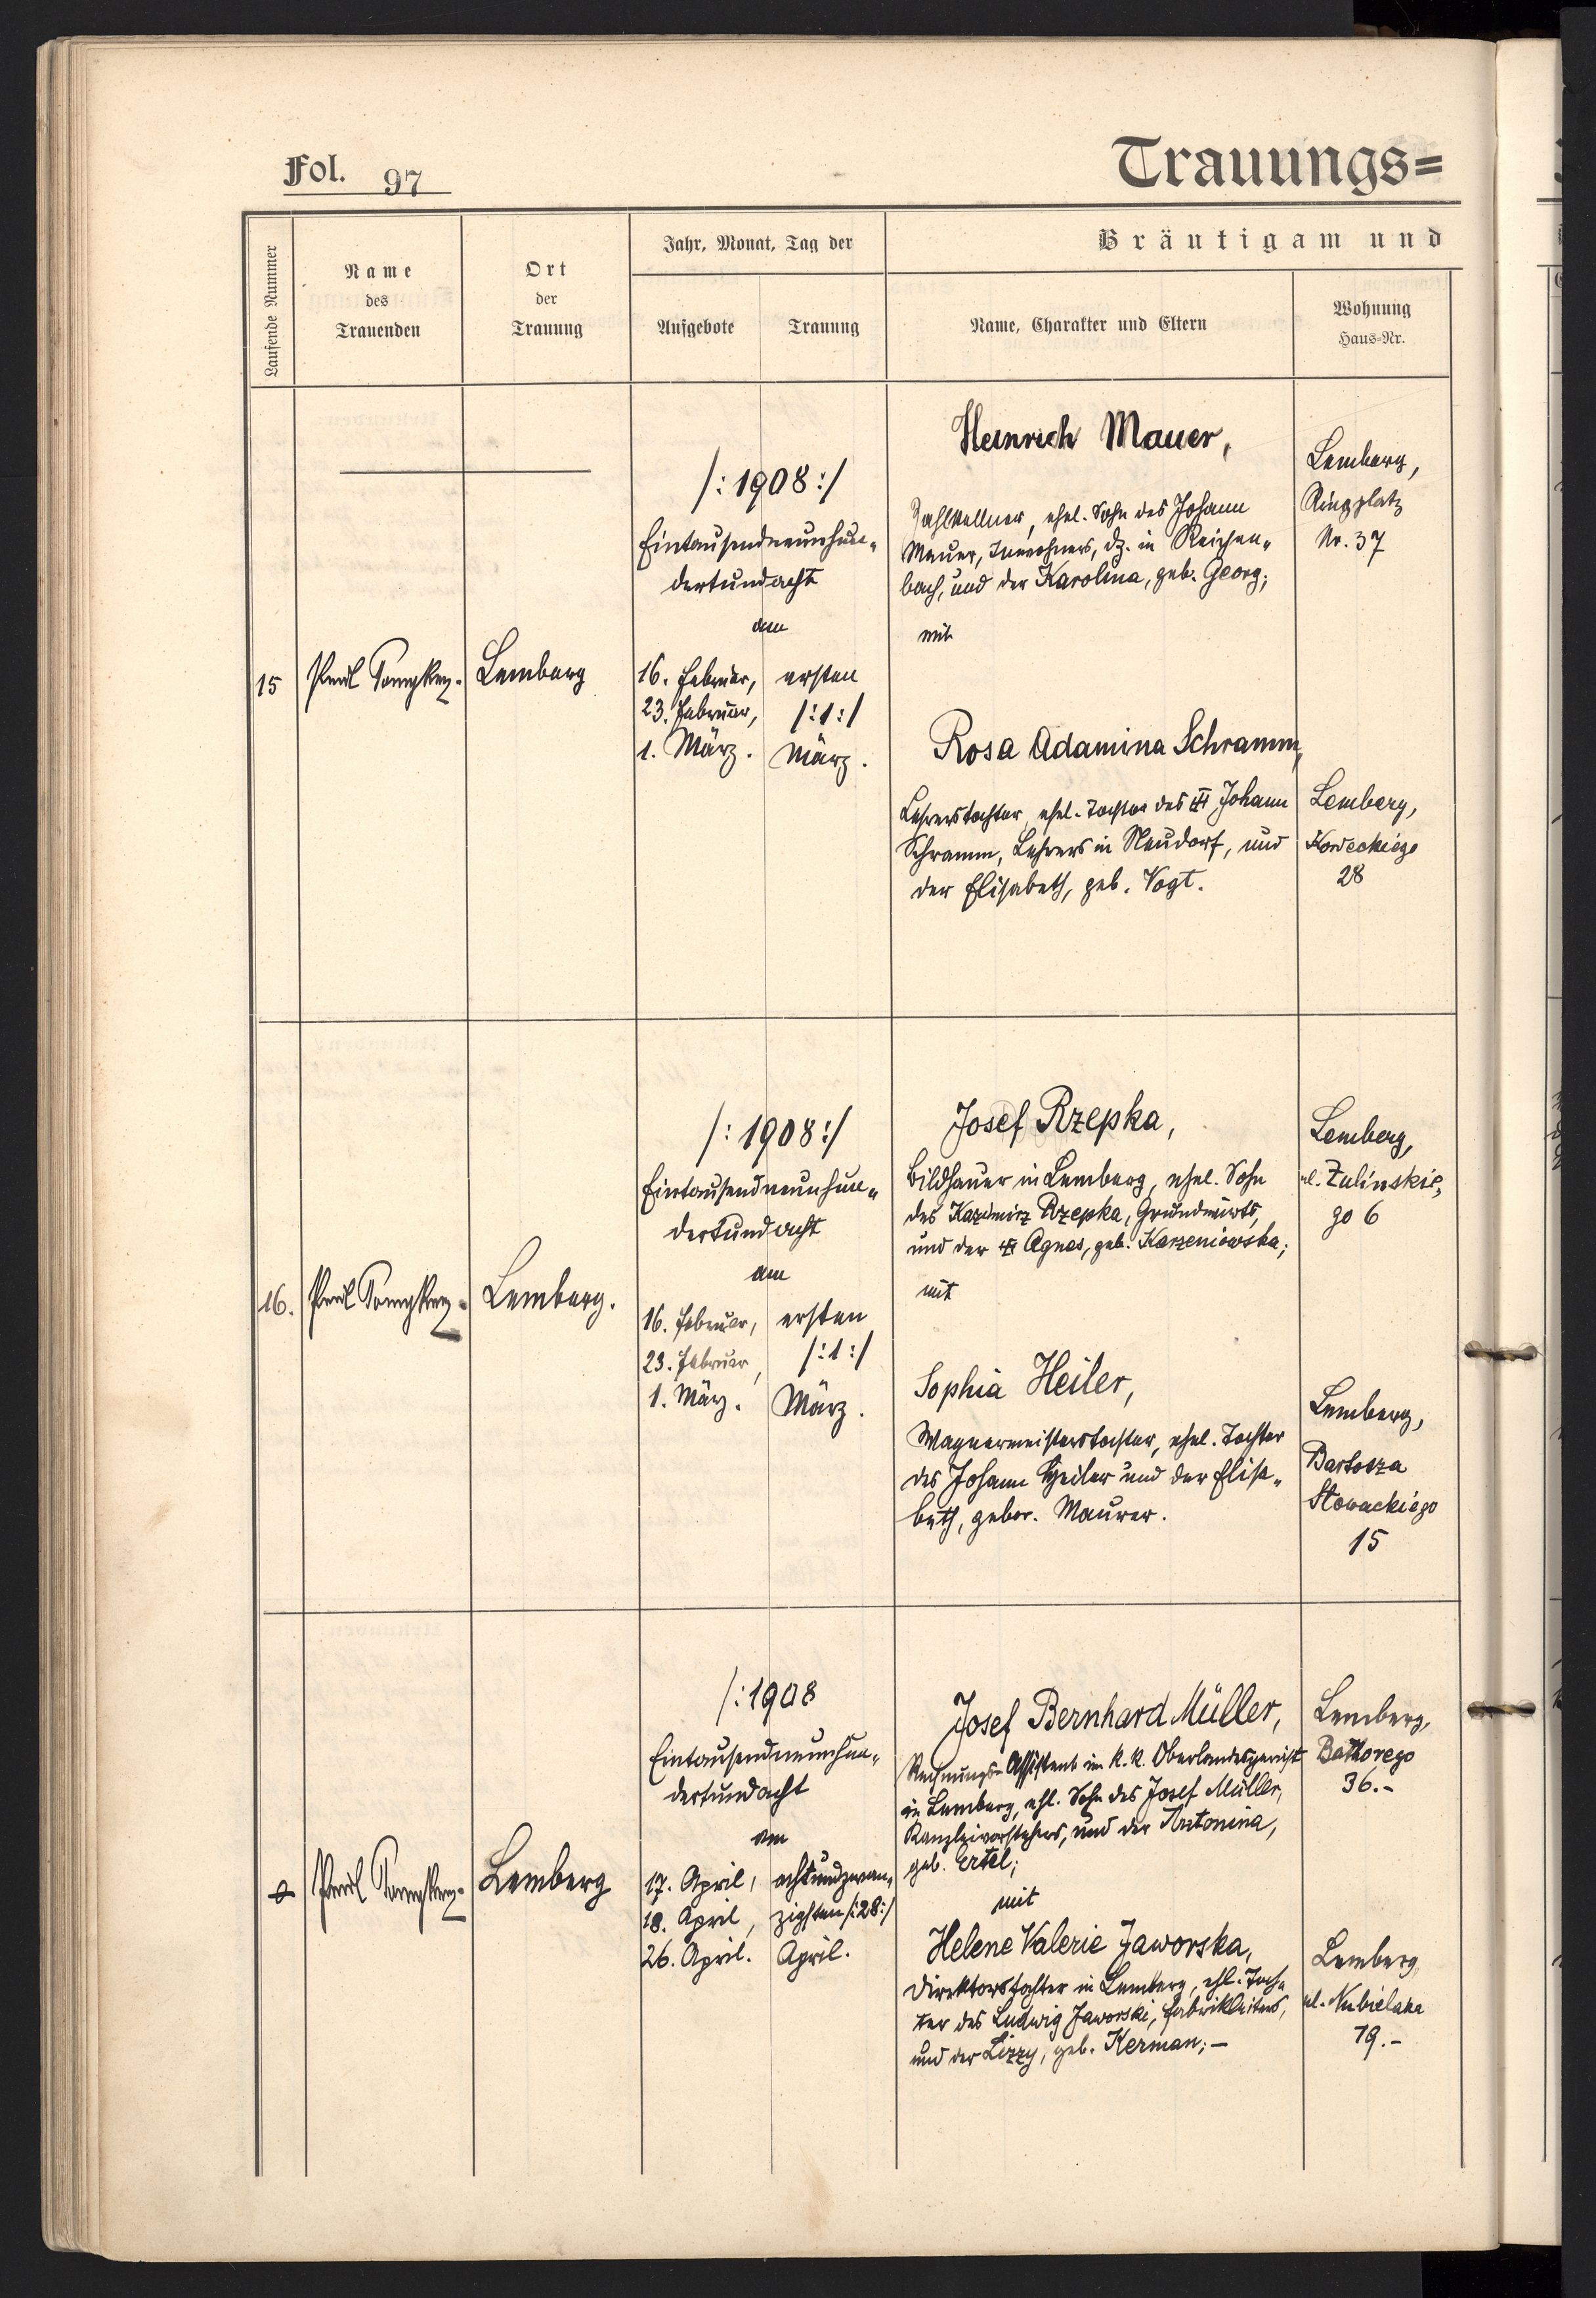 Fol. 97
Trauungs=
Laufende Nummer
Name
des
Trauenden
Ort
der
Trauung
Jahr, Monat, Tag der
Aufgebote
Trauung
Bräutigam und
Name, Charakter und Eltern
Wohnung
Haus=Nr.
15
Paul
Lemberg
/:1908:/
Eintausendneunhun-
dertundacht
am
16. Februar,
23. Februar,
1. März.
ersten
/:1:/
März.
Heinrich Mauer,
Zahlkellner, ehel. Sohn des Johann
Mauer, Inwohners, dz. in Reichen-
bach, und der Karolina, geb. Georg;
mit
Rosa Adamina Schramm,
Lehrerstochter, ehel. Tochter des Johann
Schramm, Lehrers in Neudorf, und
der Elisabeth, geb. Vogt.
Lemberg,
Ringplatz
Nr. 37
Lemberg,
Kordeckiego
28
16.
Paul
Lemberg.
/:1908:/
Eintausendneunhun-
dertundacht
am
16. Februar,
23. Februar,
1. März.
ersten
/:1:/
März.
Josef Rzepka,
Bildhauer in Lemberg, ehel. Sohn
des Kazimirz Rzepka, Grundwirts,
und der Agnes, geb. Karzeniowska;
mit
Sophia Heiler,
Wagnermeisterstochter, ehel. Tochter
des Johann Heiler und der Elisa-
beth, gebor. Maurer.
Lemberg,
ul. Zulinskie-
go 6
Lemberg,
Bartosza
Słowackiego
15
Paul
Lemberg
/:1908
Eintausendneunhun-
dertundacht
am
17. April,
18. April,
26. April.
achtundzwan-
zigsten /:28:/
April.
Josef Bernhard Müller,
Rechnungs-Assistent im k. k. Oberlandesgericht
in Lemberg, ehl. Sohn des Josef Müller,
Kanzleivorstehers, und der Antonina,
geb. Ertel;
mit
Helene Valerie Jaworska,
Direktorstochter in Lemberg, ehl. Toch-
ter des Ludwig Jaworski, Fabrikleiters,
und der Lizzy, geb. Kerman;-
Lemberg,
Bathorego
36.-
Lemberg,
ul. Nabielaka
19.-